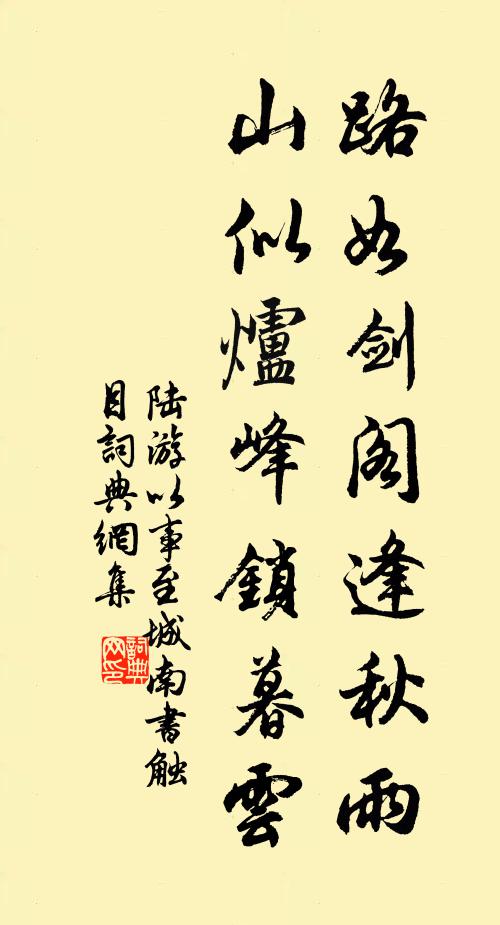 路如剑阁逢秋雨
山似爐峰鎖暮雲
陆游以事至城南書触
目詞典網集
詞典
网印